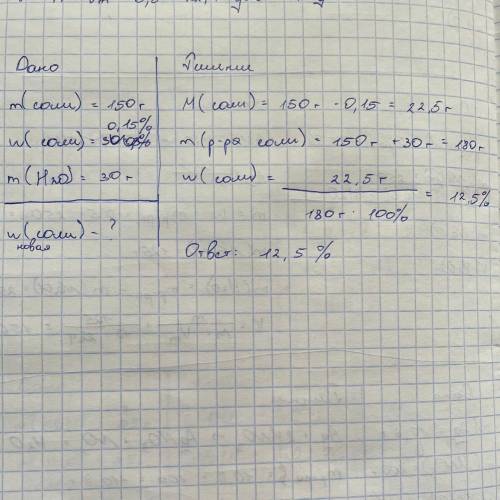 Дано
m(соли) = 150г
0,15%
w(соли) =
m(H₂O) = 30г
w(соли) - ?
новая
Решение
M(соли) = 150г · 0,15 = 22,5г
m(р-ра соли) = 150г + 30г = 180г
w(соли) = 22,5г / 180г · 100% = 12,5%
Ответ: 12,5 %